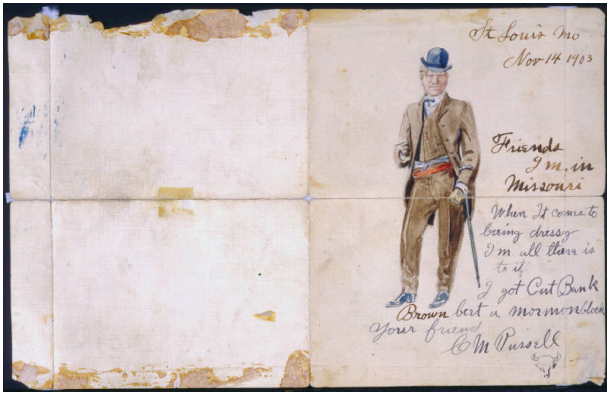 St Louis Mo
Nov 14 1903
Friends
I m in
Missouri
When It comes to
being dressy
I m all there is
to it
I got Cut Bank
Brown beet a mormon block
Your friend
C M Russell